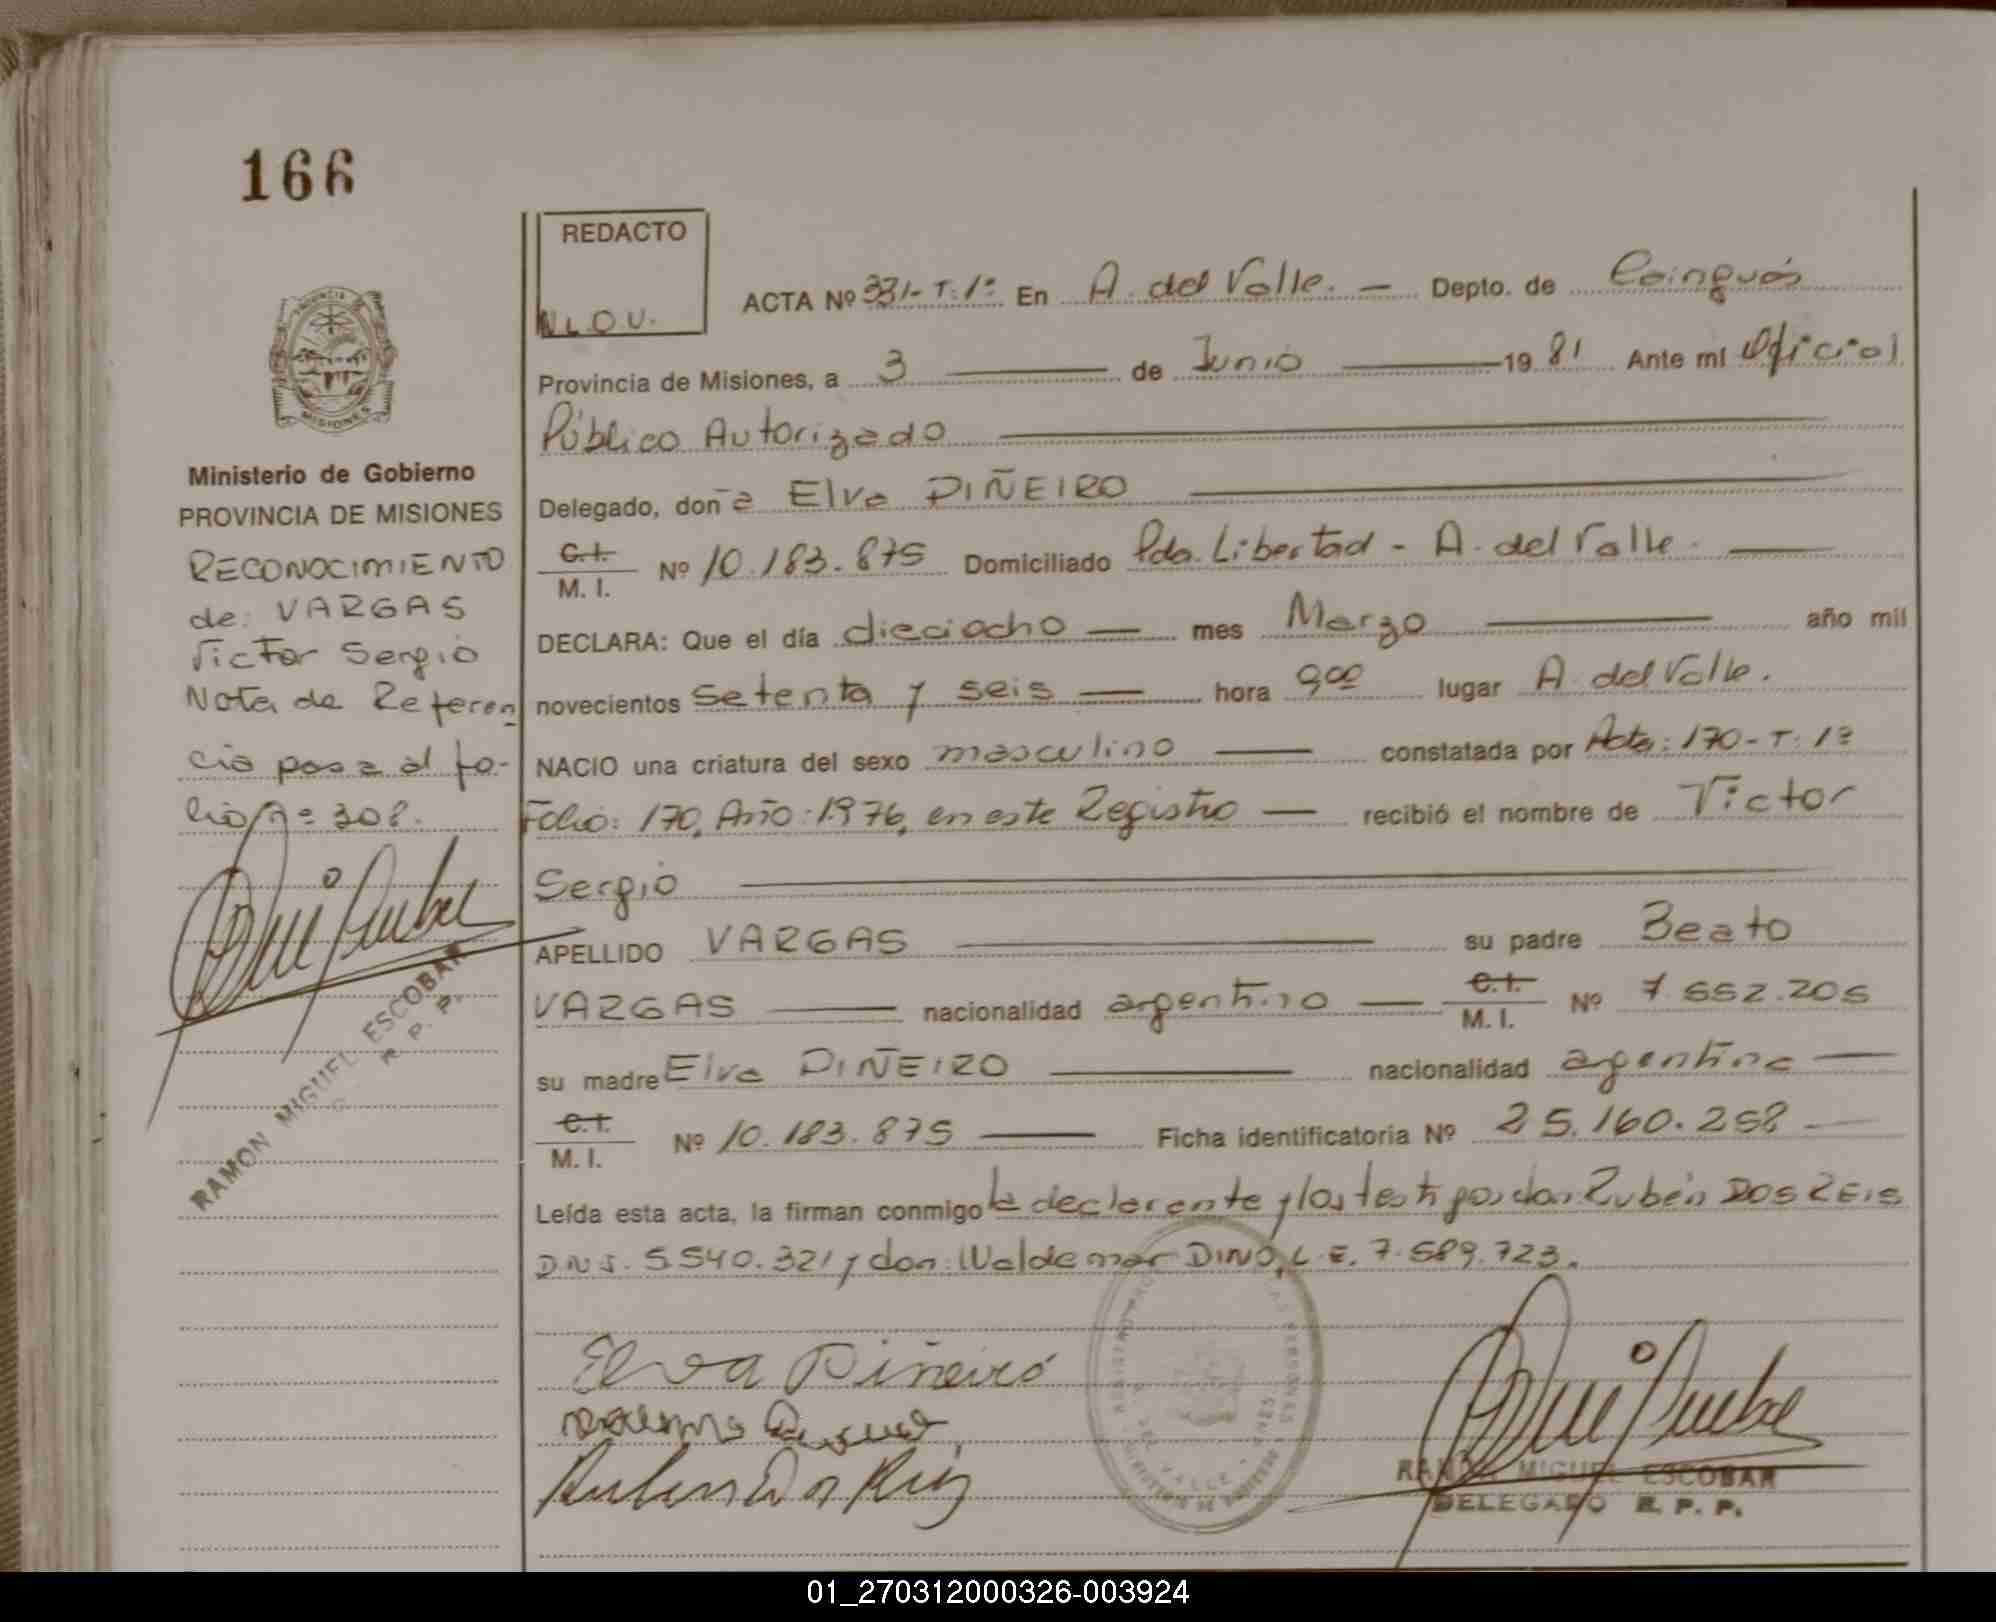 166
REDACTO
N.L.O.V.
ACTA Nº 331-T:1º En A. del Valle. — Depto. de Cainguás
Provincia de Misiones, a 3 de Junio 1981 Ante mí Oficial
Público Autorizado
Delegado, doña Elva PIÑEIRO
C.I. / M. I. Nº 10.183.875 Domiciliado Pda. Libertad - A. del Valle.
DECLARA: Que el día dieciocho — mes Marzo año mil
novecientos setenta y seis — hora 9⁰⁰ lugar A. del Valle.
NACIO una criatura del sexo masculino — constatada por Acta: 170-T:1º
Folio: 170, Año: 1976, en este Registro — recibió el nombre de Victor
Sergio
APELLIDO VARGAS su padre Beato
VARGAS — nacionalidad argentino — C.I. / M. I. Nº 7.552.205
su madre Elva PIÑEIRO nacionalidad argentina —
C.I. / M. I. Nº 10.183.875 — Ficha identificatoria Nº 25.160.258
Leída esta acta, la firman conmigo la declarante y los testigos don: Rubén DOS REIS
D.N.I. 5.540.321 y don: Waldemar DINO, L.E. 7.589.723.
Elva Piñeiró
Ruben Dos Reis
RAMON MIGUEL ESCOBAR
DELEGADO R. P. P.
PROVINCIA DE
MISIONES
Ministerio de Gobierno
PROVINCIA DE MISIONES
RECONOCIMIENTO
de: VARGAS
Victor Sergio
Nota de Referen
cia pasa al fo-
lio nº 308.
RAMON MIGUEL ESCOBAR
R. P. P.
01_270312000326-003924